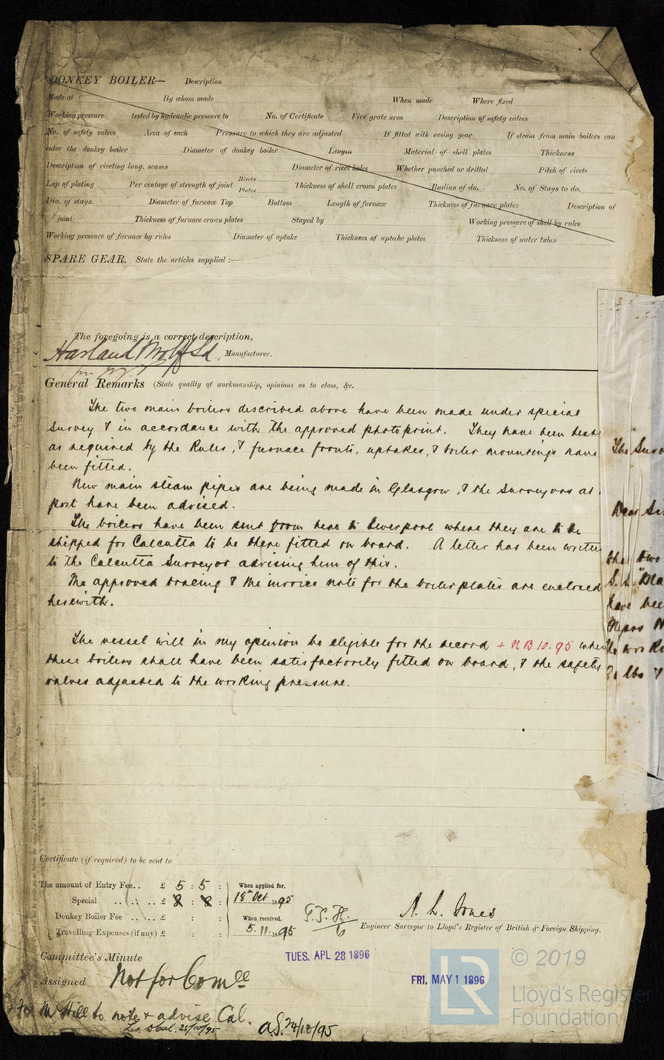 DONKEY BOILER— Description
Made at By whom made When made Where fixed
Working pressure tested by hydraulic pressure to No. of Certificate Fire grate area Description of safety valves
No. of safety valves Area of each Pressure to which they are adjusted If fitted with easing gear If steam from main boilers can
enter the donkey boiler Diameter of donkey boiler Length Material of shell plates Thickness
Description of riveting long. seams Diameter of rivet holes Whether punched or drilled Pitch of rivets
Lap of plating Per centage of strength of joint Rivets Plates Thickness of shell crown plates Radius of do. No. of Stays to do.
Dia. of stays. Diameter of furnace Top Bottom Length of furnace Thickness of furnace plates Description of
joint Thickness of furnace crown plates Stayed by Working pressure of shell by rules
Working pressure of furnace by rules Diameter of uptake Thickness of uptake plates Thickness of water tubes
SPARE GEAR. State the articles supplied :—
The foregoing is a correct description,
Harland Wolff Ld. Manufacturer.
General Remarks (State quality of workmanship, opinions as to class, &c.
The two main boilers described above have been made under special
Survey & in accordance with the approved photoprint. They have been
as required by the Rules, & furnace fronts, uptakes, & boiler mountings have
been fitted.
New main steam pipes are being made in Glasgow, & the Surveyors at
port have been advised.
The boilers have been sent from here to Liverpool where they are to be
shipped for Calcutta to be there fitted on board. A letter has been written
to the Calcutta Surveyor advising him of this.
The approved tracing & the invoice note for the boiler plates are enclosed
herewith.
The vessel will in my opinion be eligible for the record + NB 10.95 when
these boilers shall have been satisfactorily fitted on board, & the safety
valves adjusted to the working pressure.
The Surv
Dear Si
the two
S.S. "Ma
have bee
the wor
lbs
Certificate (if required) to be sent to
The amount of Entry Fee.. £ 5 : 5 : When applied for,
Special £ 8 : 8 : 18th Oct 1895
Donkey Boiler Fee £ : : When received,
Travelling Expenses (if any) £ : : 5.11.1895
A. L. Jones
Engineer Surveyor to Lloyd's Register of British & Foreign Shipping.
Committee's Minute TUES. APL 28 1896
FRI. MAY 1 1896
Assigned Not for Comee
Mr Hill to note & advise Cal.
25/10/95
24/10/95
© 2019
LR
Lloyd's Register
Foundation